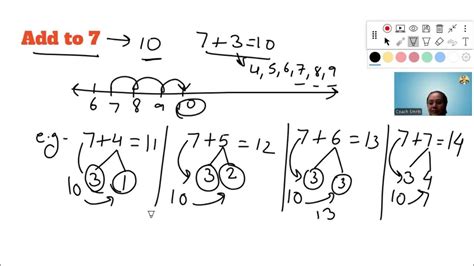 Add to 7 → 10
7+3=10
4,5,6,7,8,9
6 7 8 9 10
e.g- 7+4=11
7+5=12
7+6=13
7+7=14
3 1
3 2
3 3
3 4
10
10
10
10 7
13
Coach Smriti